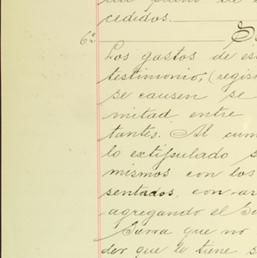 cedidos.
6ª
Los gastos de es
testimonio, (regis
se causen se
mitad, entre
tantes. Al cum
lo estipulado
mismos con los
sentados, con ar
agregando el
Suma que no
der que le tiene